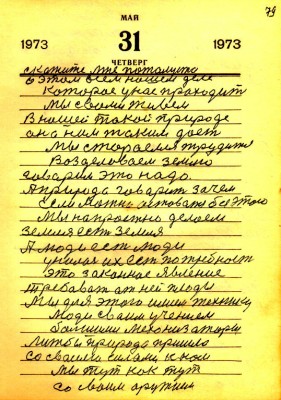 79
МАЙ
1973 31 1973
ЧЕТВЕРГ
скажите мне пожалуйста
о этом всем нашем деле
Которое у нас проходит
Мы своими живем
В нашей такой природе
она нам таким дает
Мы стораемся трудится
Возделоваем землю
говорим это надо.
А природа говорит зачем
если можно астоватс без этого
Мы напрастно делоем
Земля ест Земля
А люди ест люди
у них ест потребност
это законное явление
требоват от ней плоды
Мы для этого имеем технику
Люди своим учением
большими механизаторы
Лиш бы природа пришло
Со своими силами к нам
Мы тут как тут
со своим оружием